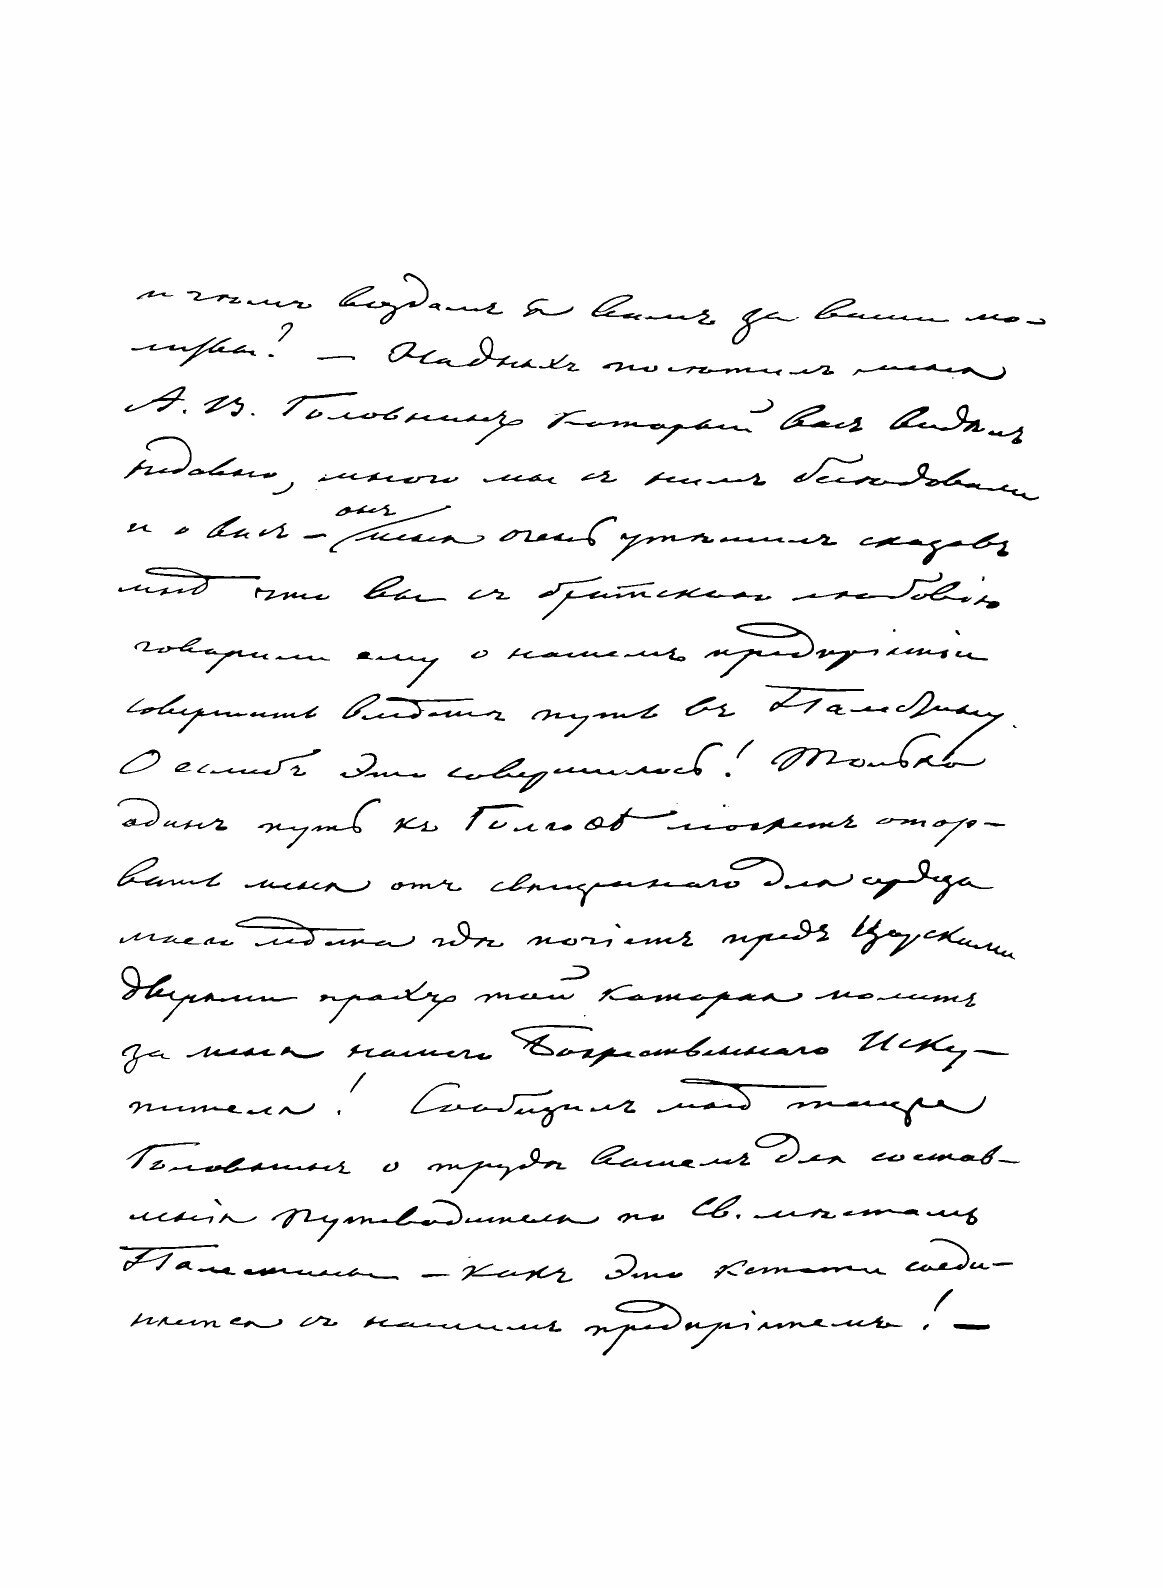 и чѣмъ воздамъ я вамъ за ваши мо-
литвы? — На дняхъ посѣтилъ меня
А. В. Головнинъ который васъ видѣлъ
недавно, много мы съ нимъ бесѣдовали
и о васъ — онъ меня очень утѣшилъ сказавъ
мнѣ что вы съ братскою любовію
говорили ему о нашемъ предпріятіи
совершить вмѣстѣ путь въ Палестину.
О еслибъ это совершилось! Только
одинъ путь къ Голгоѳѣ можетъ отор-
вать меня отъ священнаго для сердца
моего мѣста гдѣ почіетъ предъ Царскими
дверьми прахъ той которая молитъ
за меня нашего Божественнаго Иску-
пителя! Сообщилъ мнѣ также
Головнинъ о трудѣ вашемъ для состав-
ленія Путеводителя по Св. мѣстамъ
Палестины — какъ это кстати соеди-
няется съ нашимъ предпріятіемъ! —